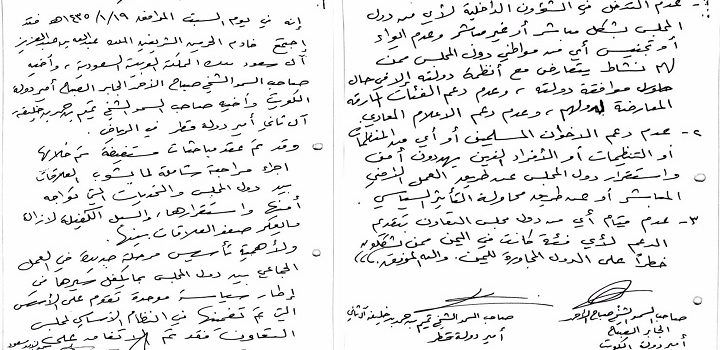 إنه في يوم السبت الموافق ١٤٣٥/١/١٩هـ فقد
اجتمع خادم الحرمين الشريفين الملك عبدالله بن عبدالعزيز
آل سعود ملك المملكة العربية السعودية، وأخيه
صاحب السمو الشيخ صباح الأحمد الجابر الصباح أمير دولة
الكويت وأخيه صاحب السمو الشيخ تميم بن حمد بن خليفة
آل ثاني أمير دولة قطر في الرياض.
وقد تم عقد مباحثات مستفيضة تم خلالها
اجراء مراجعة شاملة لما يشوب العلاقات
بين دول المجلس والتحديات التي تواجه
أمنها واستقرارها، والسبل الكفيلة لإزالة
ما يعكر صفو العلاقات بينها.
ولأهمية تأسيس مرحلة جديدة في العمل
الجماعي بين دول المجلس بما يكفل سيرها في
إطار سياسة موحدة تقوم على الأسس
التي تم تضمينها في النظام الأساسي لمجلس
التعاون فقد تم الاتفاق على
عدم التدخل في الشؤون الداخلية لأي من دول
المجلس بشكل مباشر أو غير مباشر وعدم إيواء
أو تجنيس أي من مواطني دول المجلس ممن
لهم نشاط يتعارض مع أنظمة دولته إلا في حال
موافقة دولته، وعدم دعم الفئات المارقة
المعارضة لدولهم، وعدم دعم الاعلام المعادي.
٢- عدم دعم الاخوان المسلمين أو أي من المنظمات
أو التنظيمات أو الأفراد الذين يهددون أمن
واستقرار دول المجلس عن طريق العمل الأمني
المباشر أو عن طريق محاولة التأثير السياسي.
٣- عدم قيام أي من دول مجلس التعاون بتقديم
الدعم لأي فئة كانت في اليمن ممن يشكلون
خطراً على الدول المجاورة لليمن. والله الموفق،،،
صاحب السمو الشيخ صباح الأحمد
الجابر الصباح
أمير دولة الكويت
صاحب السمو الشيخ تميم بن حمد بن خليفة آل ثاني
أمير دولة قطر